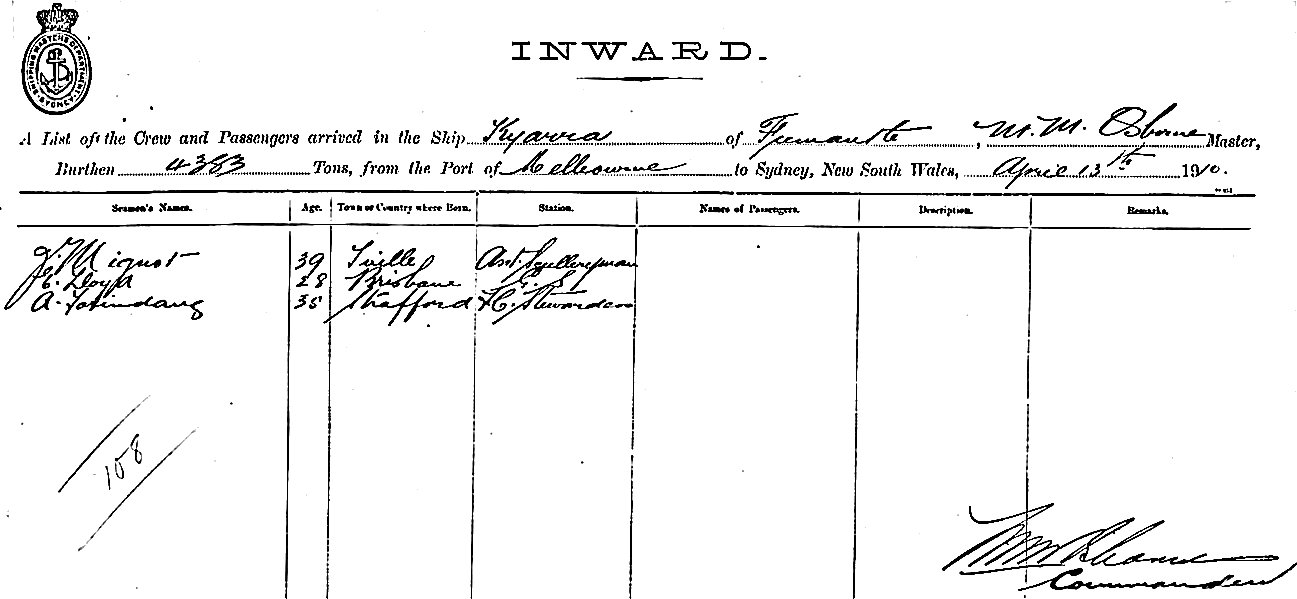 SHIPPING MASTER'S DEPARTMENT SYDNEY
INWARD.
A List of the Crew and Passengers arrived in the Ship Kyarra of Fremantle, M. M. Osborne Master,
Burthen 4383 Tons, from the Port of Melbourne to Sydney, New South Wales, April 13th 1910.
Seamen's Names. Age. Town or Country where Born. Station. Names of Passengers. Description. Remarks.
J. Mignot 39 Ast. Sculleryman
E. Lloyd 28 Brisbane G. S.
A. 35 Strafford F.C. Stewardess
108
Commander